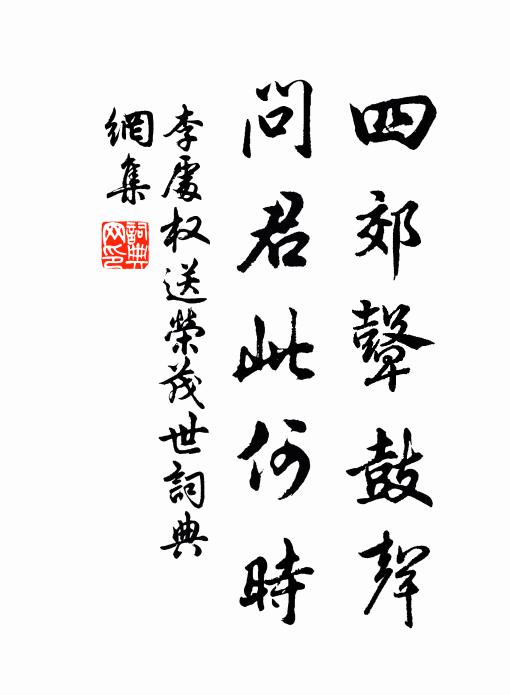 四郊鼙鼓聲
問君此何時
李處权送榮茂世詞典
網集
詞典
网印